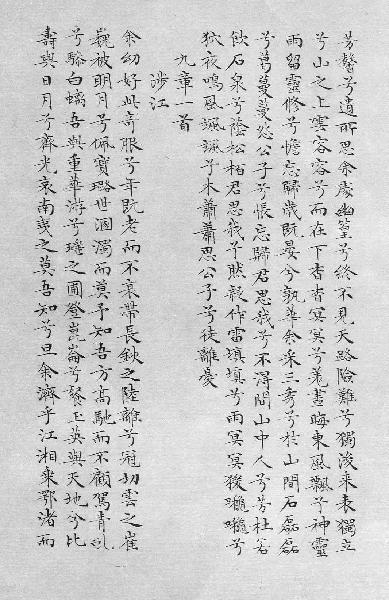 芳馨兮遺所思余處幽篁兮終不見天路險難兮獨後來表獨立
兮山之上雲容容兮而在下杳杳冥冥兮羌晝晦東風飄兮神靈
雨留靈修兮憺忘歸歲既晏兮孰華余采三秀兮於山間石磊磊
兮葛蔓蔓怨公子兮悵忘歸君思我兮不得閒山中人兮芳杜若
飲石泉兮蔭松柏君思我兮然疑作雷填填兮雨冥冥猨兮
狖夜鳴風颯颯兮木蕭蕭思公子兮徒離憂
九章一首
涉江
余幼好此奇服兮年既老而不衰帶長鋏之陸離兮冠切雲之崔
巍被明月兮佩寶璐世溷濁而莫予知吾方高馳而不顧駕青虬
兮驂白螭吾與重華游兮瑤之圃登崑崙兮餐玉英與天地兮比
壽與日月兮齊光哀南夷之莫吾知兮旦余濟乎江湘乘鄂渚而